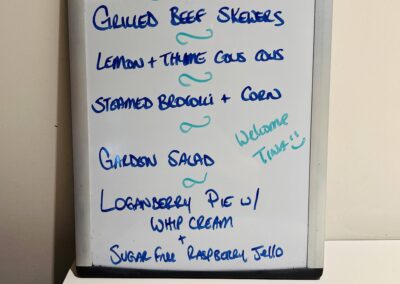 GRILLED BEEF SKEWERS
LEMON + THYME COUS COUS
STEAMED BROCOLLI + CORN
Welcome
TINA
GARDEN SALAD
LOGANBERRY PIE W/
WHIP CREAM
+
SUGAR FREE RASPBERRY JELLO